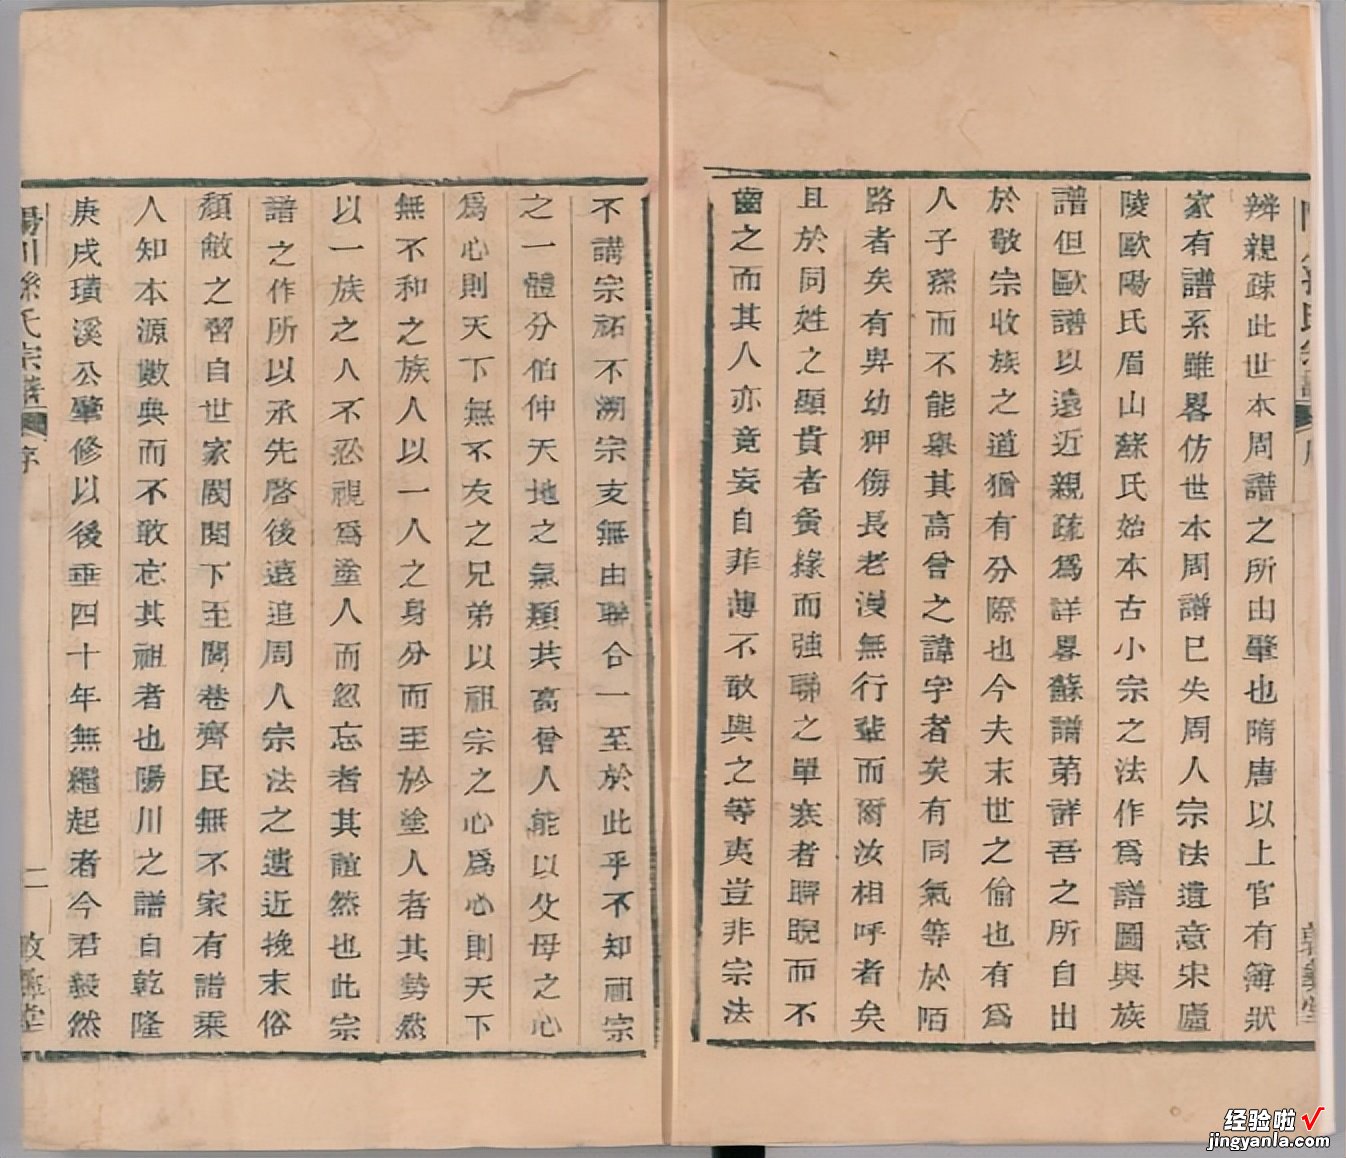 辨親疎此世本周譜之所由肇也隋唐以上官有簿狀
家有譜系雖畧仿世本周譜已失周人宗法遺意宋廬
陵歐陽氏眉山蘇氏始本古小宗之法作爲譜圖與族
譜但歐譜以遠近親疏爲詳畧蘇譜第詳吾之所自出
於敬宗收族之道猶有分際也今夫末世之偷也有爲
人子孫而不能舉其高曾之諱字者矣有同氣等於陌
路者矣有卑幼狎侮長老漫無行輩而爾汝相呼者矣
且於同姓之顯貴者夤緣而強聯之單寒者睥睨而不
齒之而其人亦竟妄自菲薄不敢與之等夷豈非宗法
不講宗祏不溯宗支無由聯合一至於此乎不知祖宗
之一體分伯仲天地之氣類共高曾人能以父母之心
爲心則天下無不友之兄弟以祖宗之心爲心則天下
無不和之族人以一人之身分而至於塗人者其勢然
以一族之人不忍視爲塗人而忽忘者其誼然也此宗
譜之作所以承先啓後遠追周人宗法之遺近挽末俗
頹敝之習自世家閥閱下至閭巷齊民無不家有譜乘
人知本源數典而不敢忘其祖者也陽川之譜自乾隆
庚戌璜溪公肇修以後垂四十年無繼起者今君毅然
陽川孫氏宗譜 序 二 敦彝堂
经验啦√
jingyanla.com